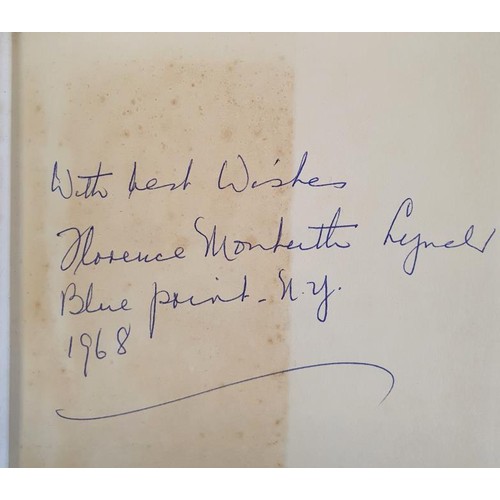 With best Wishes
Florence Monteith Lynch
Blue point - N.Y.
1968